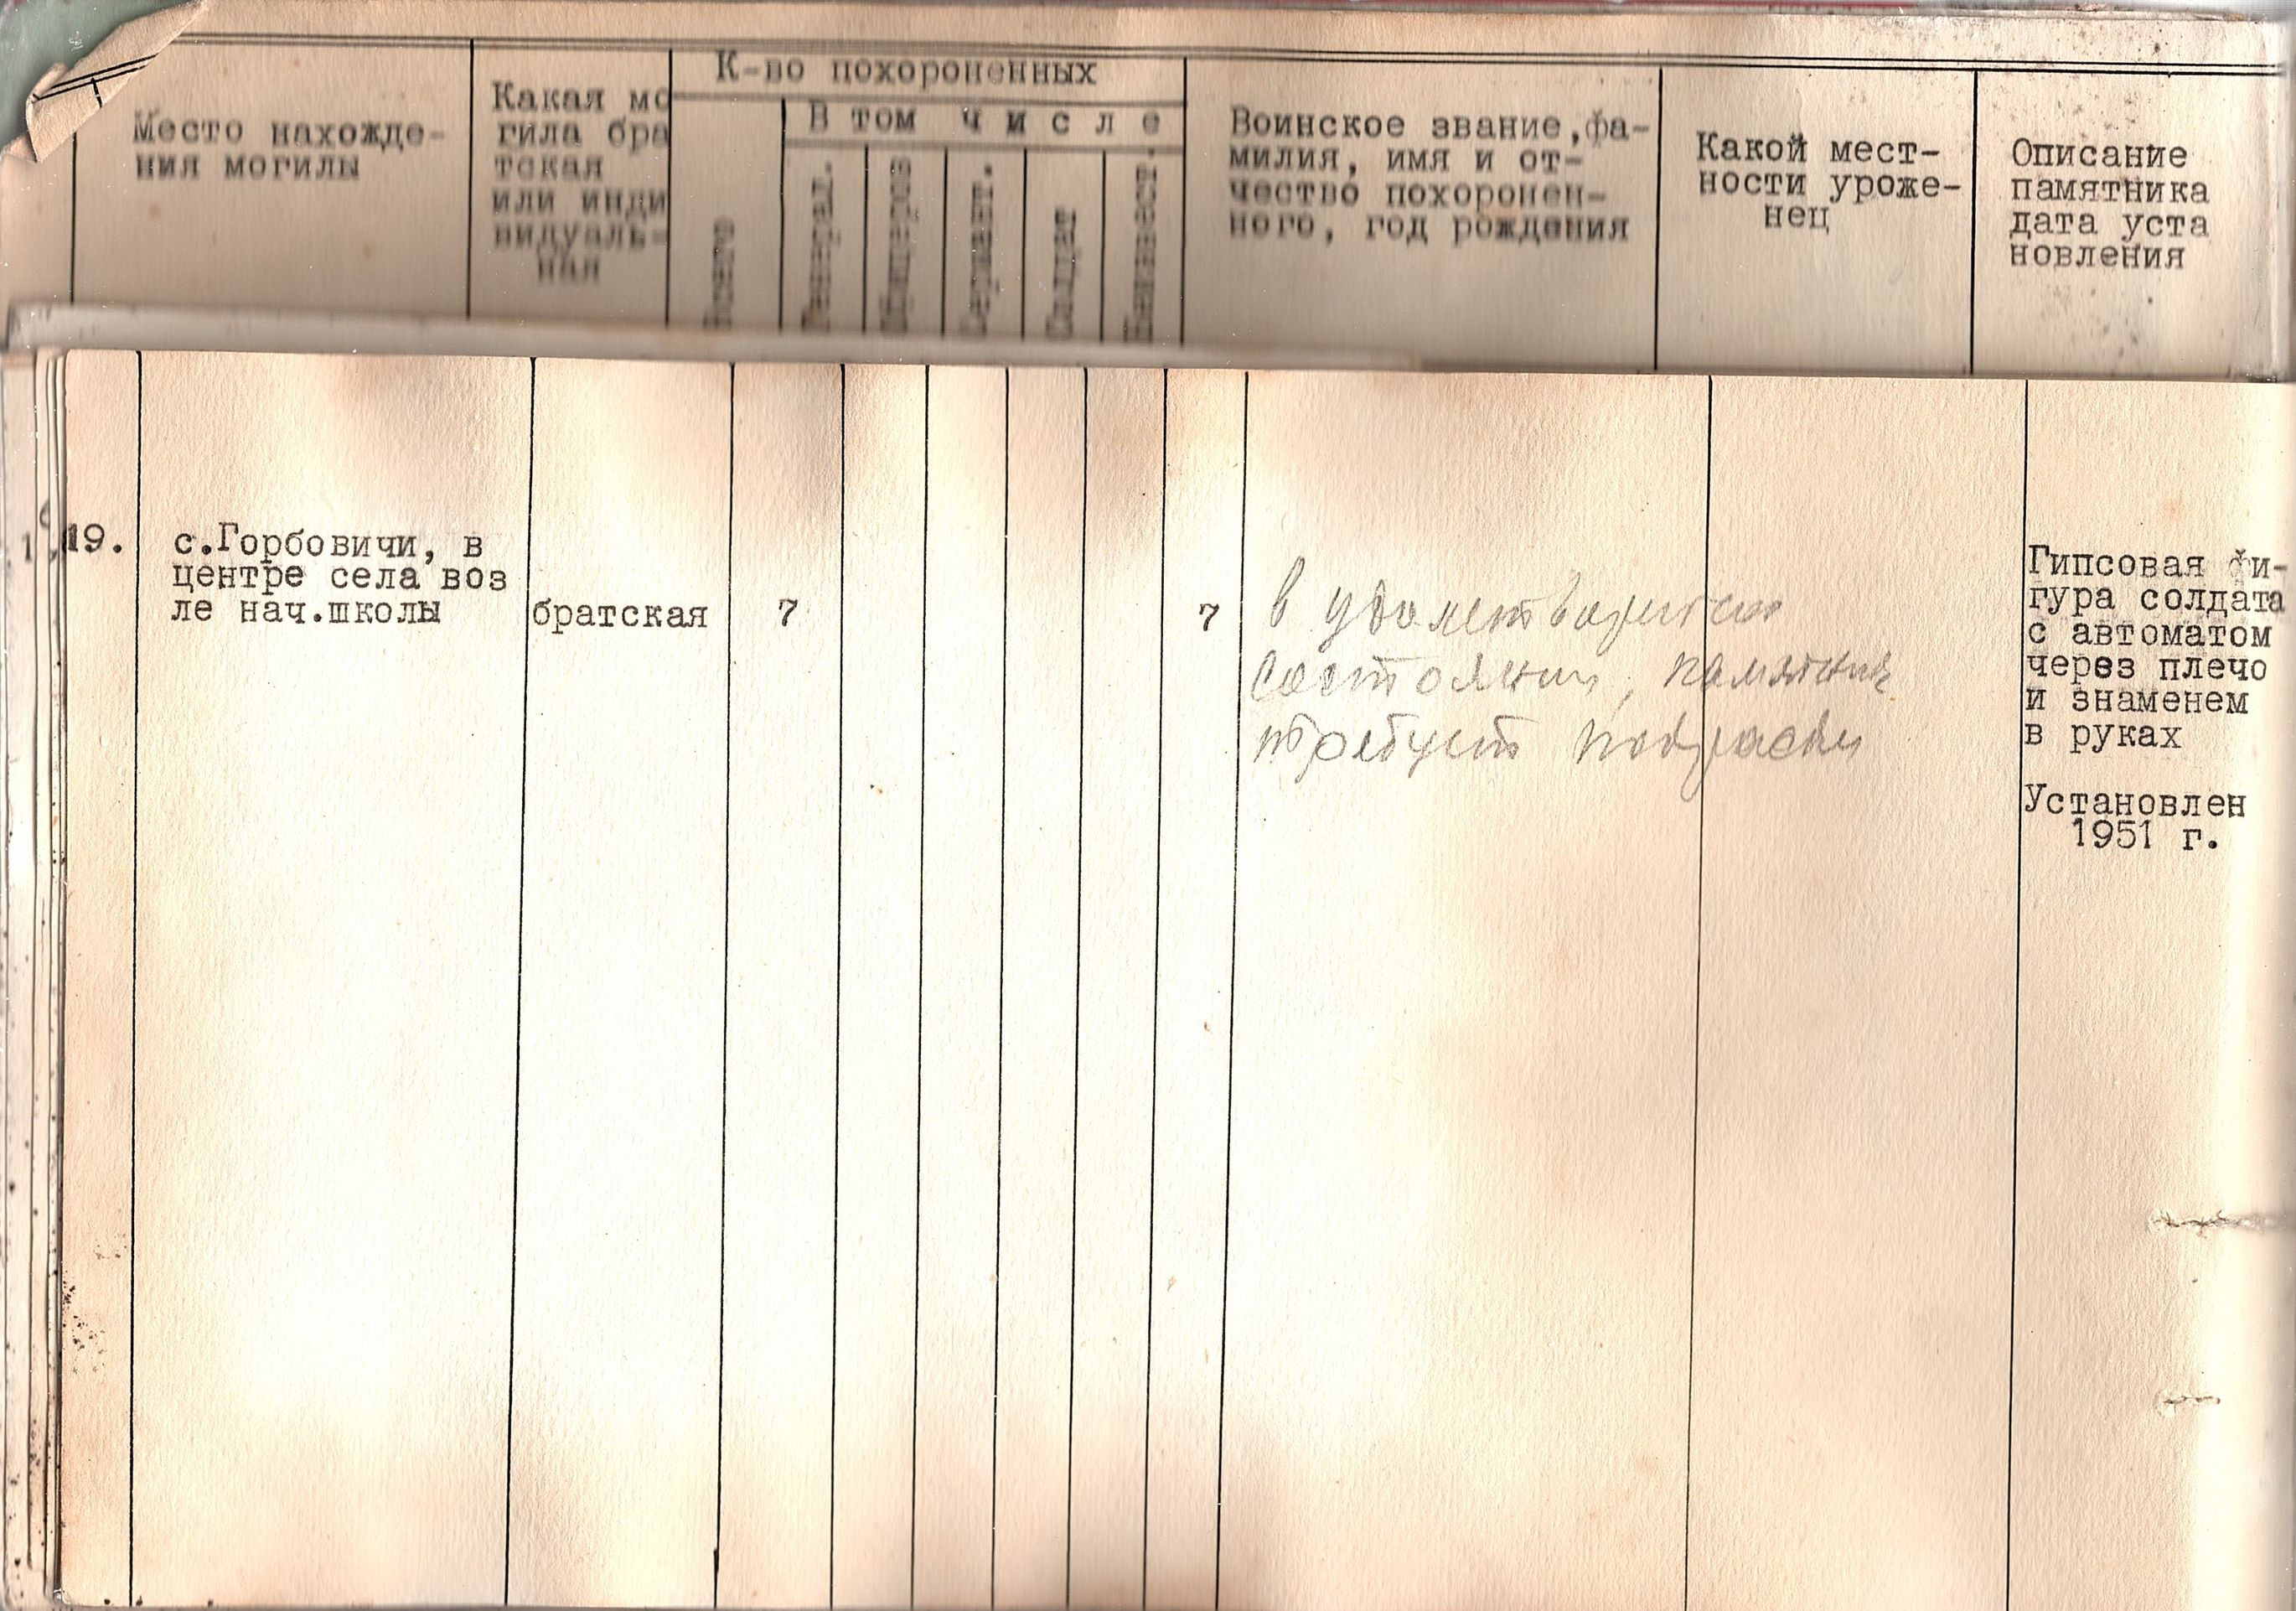 Место нахожде-
ния могилы
Какая мо
гила бра
тская
или инди
видуаль-
ная
К-во похороненных
В том числе
Всего
Генерал.
Офицеров
Сержант.
Солдат
Неизвест.
Воинское звание,фа-
милия, имя и от-
чество похоронен-
ного, год рождения
Какой мест-
ности уроже-
нец
Описание
памятника
дата уста
новления
19.
с.Горбовичи, в
центре села воз
ле нач.школы
братская
7
7
в удовлетворител
состоянии, памятник
требует покраски
Гипсовая фи-
гура солдата
с автоматом
через плечо
и знаменем
в руках
Установлен
1951 г.